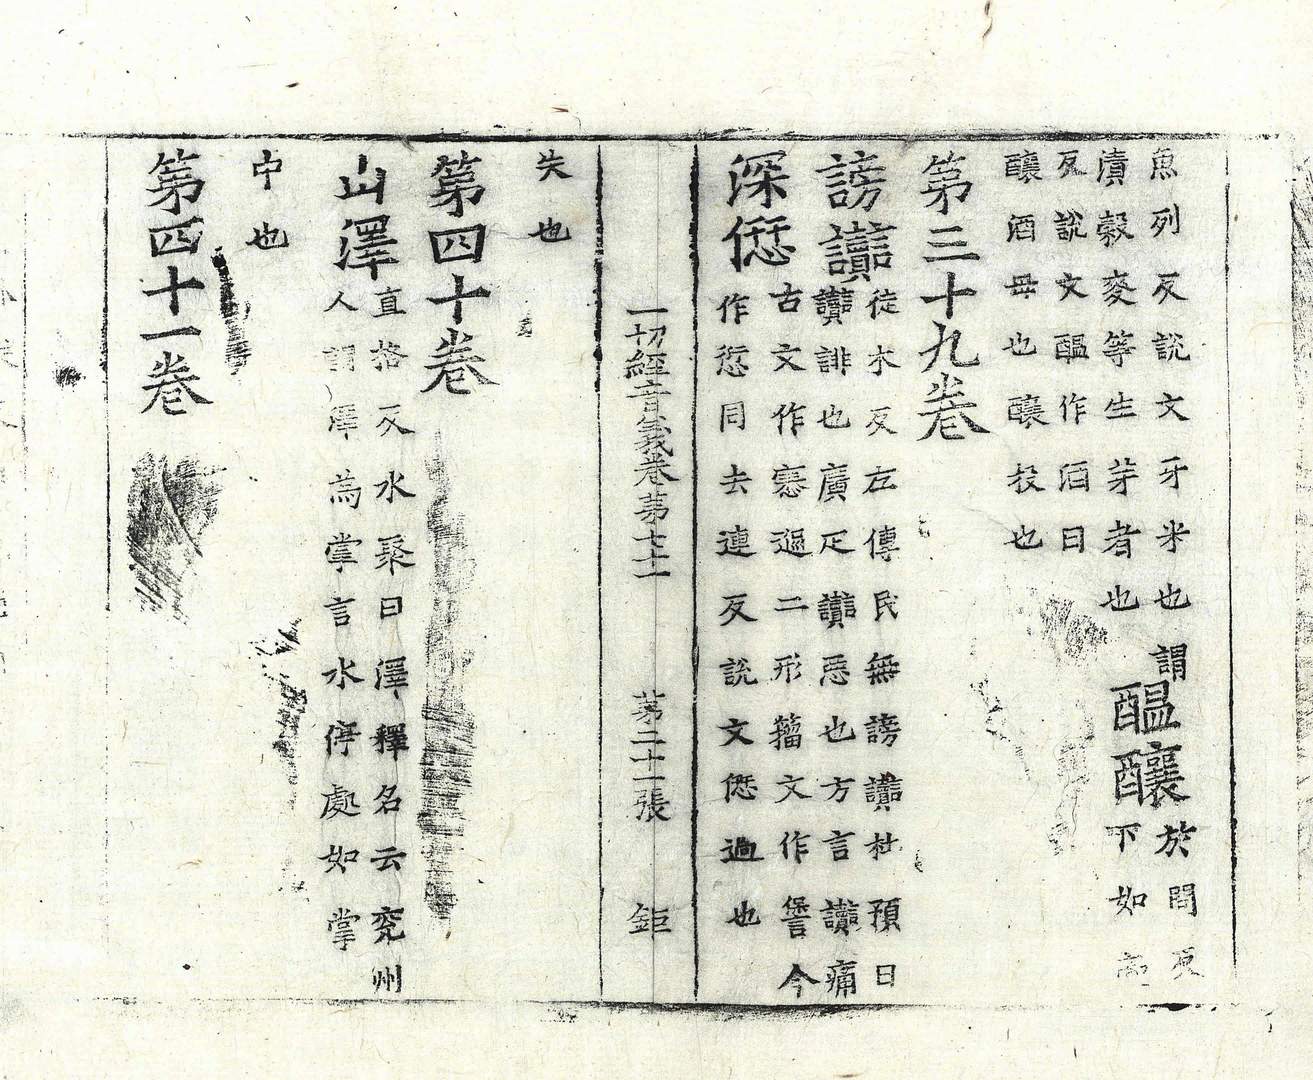 魚列反說文牙米也謂
漬穀麥等生芽者也
醞釀
於問反
下如高
反說文醞作酒曰
釀酒母也釀投也
第三十九卷
謗讟
徒木反左傳民無謗讟杜預曰
讟誹也廣疋讟惡也方言讟痛
深𠎝
古文作二形籀文作諐今
作愆同去連反說文𠎝過也
一切經音義卷第七十一 第二十一張 鉅
失也
第四十卷
山澤
直格反水聚曰澤釋名云兖州
人謂澤為掌言水停處如掌
中也
第四十一卷